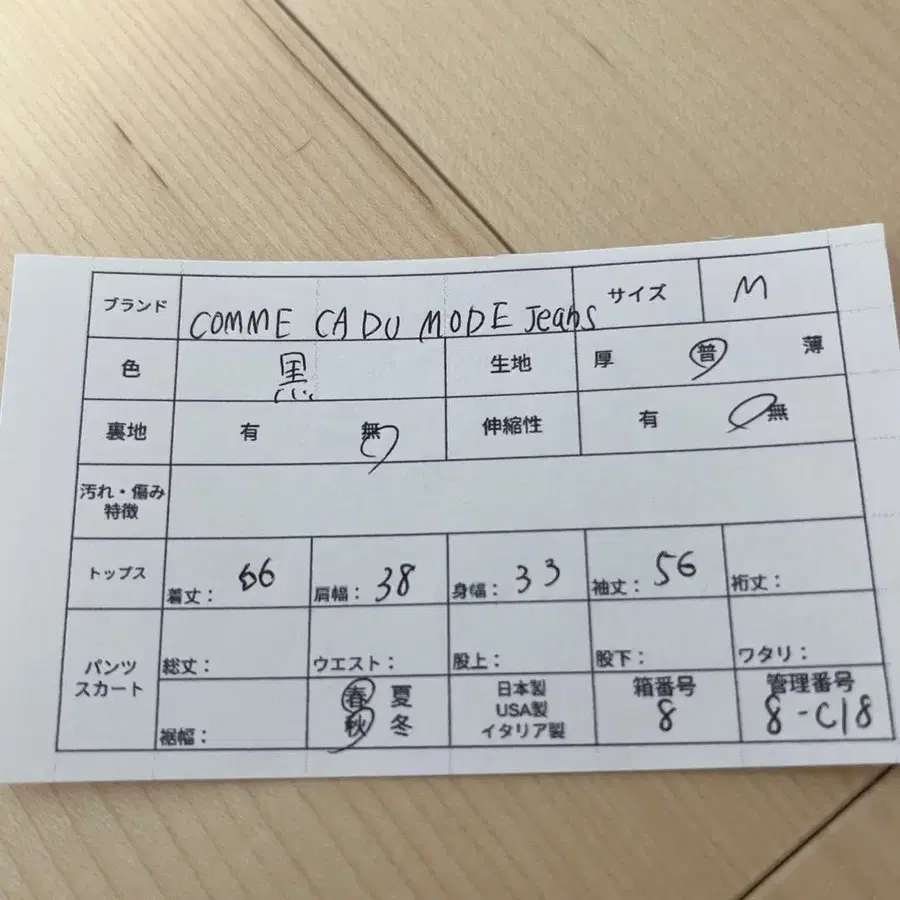 ブランド COMME CA DU MODE Jeans サイズ M
色 黒 生地 厚 普 薄
裏地 有 無 伸縮性 有 無
汚れ・傷み
特徴
トップス 着丈: 66 肩幅: 38 身幅: 33 袖丈: 56 裄丈:
パンツ
スカート
総丈: ウエスト: 股上: 股下: ワタリ:
裾幅:
春 夏
秋 冬
日本製
USA製
イタリア製
箱番号
8
管理番号
8-C18